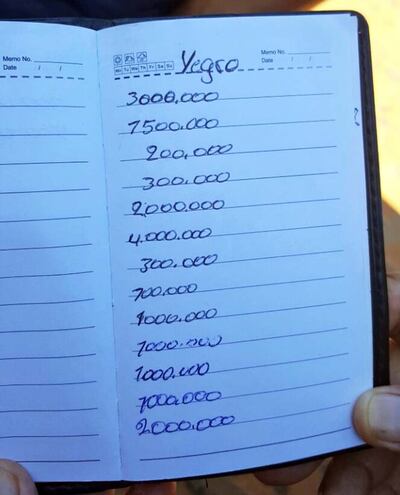 Memo No.
Date / /
Mo Tu We Th Fr Sa Su
Yegro
Memo No.
Date / /
3000.000
1500.000
200.000
300.000
2.000.000
4.000.000
300.000
700.000
1000.000
1000.000
1000.000
1000.000
2.000.000